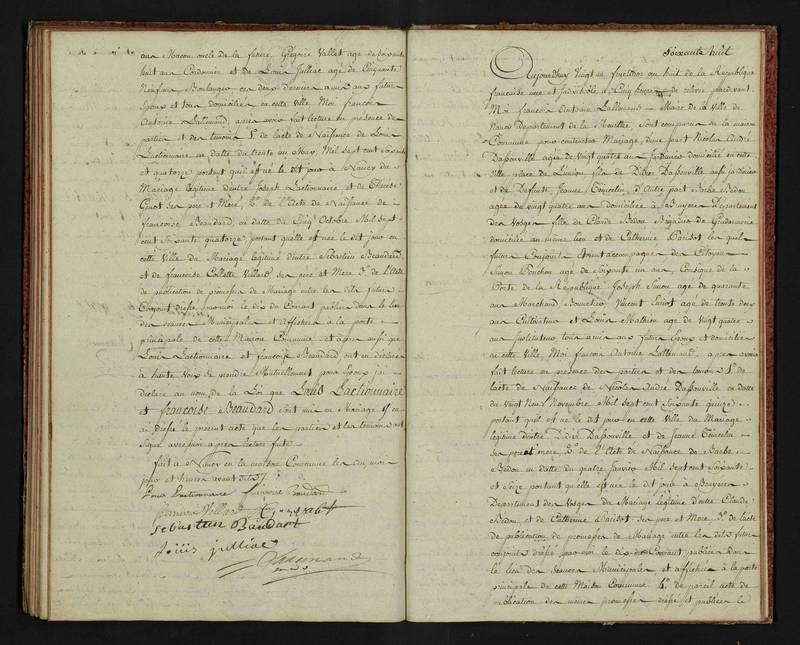 aux Macon oncle de la future Grégoire Vallet age de soixante
huit ans Cordonnier et de Louis Julliac age de Cinquante
neuf ans Boulanger ces deux derniers amis aux futurs
Epoux et tous domiciliés en cette Ville Moi francois
Antoine Lallemand, apres avoir fait lecture en presence des
parties et des temoins 1o de l'acte de Naissance de Louis
Lactionnaire en datte du trente un May, Mil sept cent soixante
et quatorze portant qu'il est né le dit jour à Nancy du
Mariage légitime d'entre Joseph Lactionnaire et de Therese
Genot ses pere et Mere, 2o de l'Acte de Naissance de
francoise Beaudard, en datte du Cinq Octobre Mil sept
cent soixante quatorze portant quelle est née le dit jour en
cette Ville du Mariage légitime d'entre Sebastien Beaudard
et de francoise Collette Villard ses pere et Mere 3o de l'Acte
de publication de promesses de Mariage entre les dits futurs
Conjoints dressé par moi le dix du Courant publiée dans le lieu
des seances Municipales et affichée à la porte
principale de cette Maison Commune et apres aussi que
Louis Lactionnaire et francoise Beaudard ont eu déclaré
à haute voix se prendre Mutuellement pour Epoux j'ai
déclaré au nom de la Loi que Louis Lactionnaire
et francoise Beaudard sont unis en Mariage et en
ai dressé le present acte que les parties et les temoins ont
signé avec moi apres lecture faite
fait à Nancy en la maison Commune les an mois
jour et heures avant dits
Louis lactionnaire francoise Beaudard
Villard
Sebastien Baudart
Louis julliac
Lallemand
Soixante huit
Aujourdhuy vingt un fructidor an huit de la République
francaise une et indivisible à Cinq heures de relevée pardevant
Moi francois Antoine Lallemand Maire de la Ville de
Nancy Departement de la Meurthe, sont comparus en la maison
Commune pour contracter Mariage, d'une part Nicolas André
Dassouville agé de vingt quatre ans Jardinier domicilié en cette
ville place de fils de Didier Dassouville aussi jardinier
et de Defunte Jeanne d'autre part Barbe Bedon
agée de vingt quatre ans domiciliée à Bruyeres Département
des Vosges fille de Claude Bedon Brigadier de Gendarmerie
domicilié au meme lieu et de Catherine Parisot les quels
futurs Conjoints Etaient accompagnés des Citoyens
age de soixante un ans Consigne de la
Porte de la République Joseph Simon age de quarante
ans Marchand Vincent age de trente deux
ans Cultivateur et Louis Mathieu age de vingt quatre
ans Instituteur tous amis aux futurs Epoux et domiciliés
en cette Ville, Moi francois Antoine Lallemand, apres avoir
fait lecture en presence des parties et des temoins 1o de
l'acte de Naissance de Nicolas André Dassouville en datte
du vingt Neuf Novembre Mil sept cent soixante quinze
portant qu'il est né le dit jour en cette Ville du Mariage
légitime d'entre Didier Dassouville et de Jeanne
ses pere et mere, 2o de l'Acte de Naissance de Barbe
Bedon en datte du quatre Janvier Mil sept cent soixante
et seize portant qu'elle est née le dit jour à Bruyeres
Département des Vosges du Mariage légitime d'entre Claude
Bedon, et de Catherine Parisot ses pere et Mere 3o de l'acte
de publication de promesses de Mariage entre les dits futurs
conjoints dressé par moi le dix du Courant publiée dans
le lieu des seances Municipales et affichée à la porte
principale de cette Maison Commune 4o de pareil acte de
publication des mêmes promesses dressé et publiée le